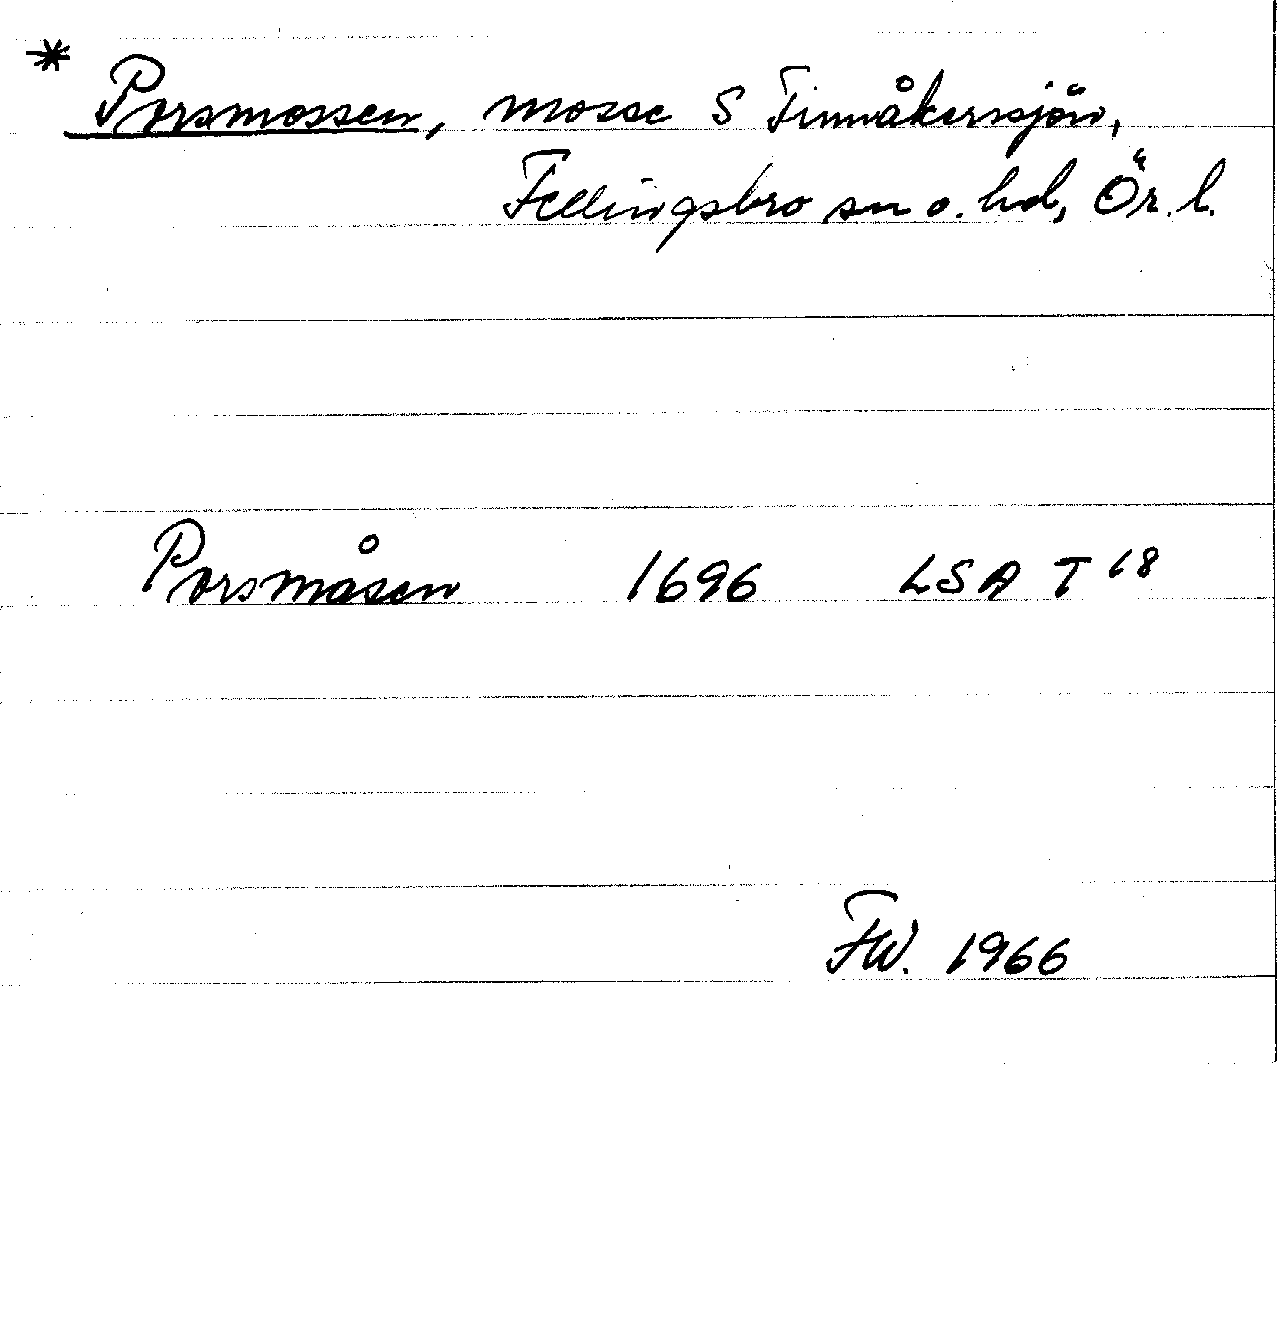 * Porsmossen, mosse S Finnåkersjön,
Fellingsbro sn o. hd, Ör. l.
Porsmåsen 1696 LSA T 68
FW. 1966